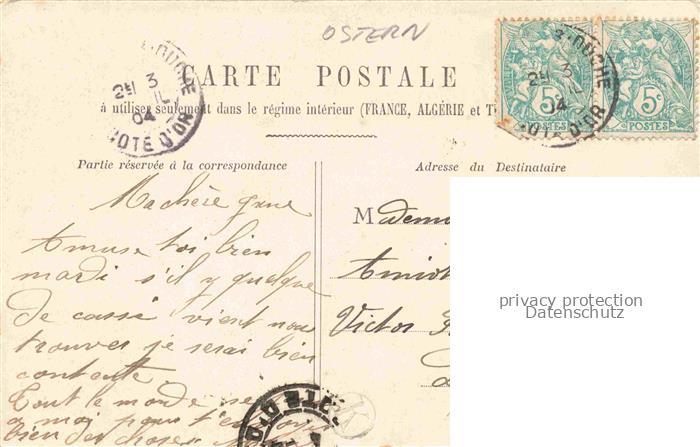 OSTERN
CARTE POSTALE
à utiliser seulement dans le régime intérieur (FRANCE, ALGÉRIE et T
Partie réservée à la correspondance
Adresse du Destinataire
5c 5c
POSTES POSTES
3
04
COTE D'OR
3
04
COTE D'OR
Ma chère
Amuse toi bien
mardi s'il y quelque
de cassé vient nou
trouver je serai bien
contente
Tout le monde se
a moi pour t'en
bien des choses
Madem
Victor
privacy protection
Datenschutz